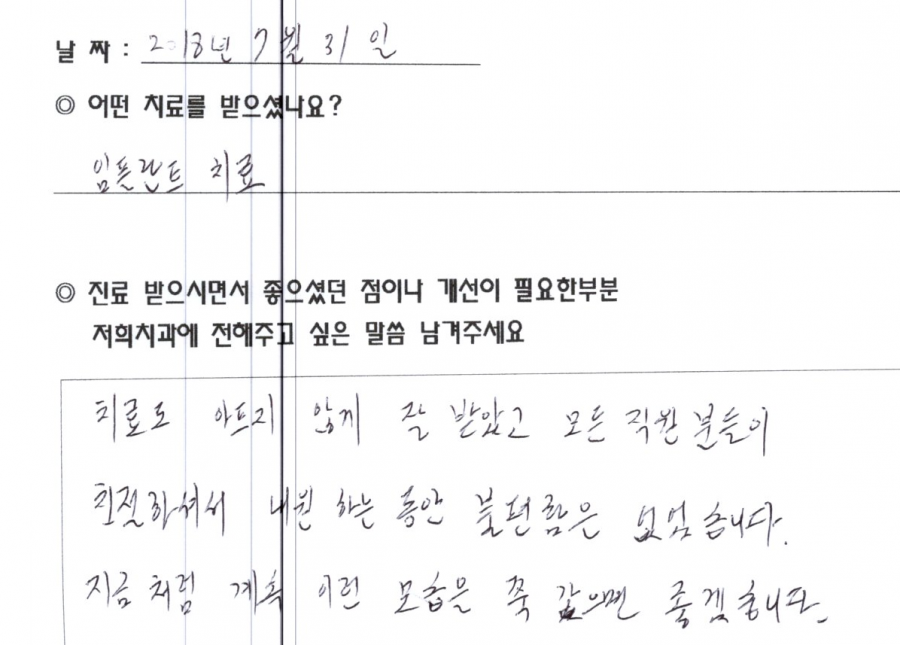 날 짜 : 2018년 7월 31일
◎ 어떤 치료를 받으셨나요?
임플란트 치료
◎ 진료 받으시면서 좋으셨던 점이나 개선이 필요한부분
저희치과에 전해주고 싶은 말씀 남겨주세요
치료도 아프지 않게 잘 받았고 모든 직원분들이
친절하셔서 내원 하는 동안 불편함은 없었습니다.
지금처럼 계속 이런 모습을 쭉 갔으면 좋겠습니다.